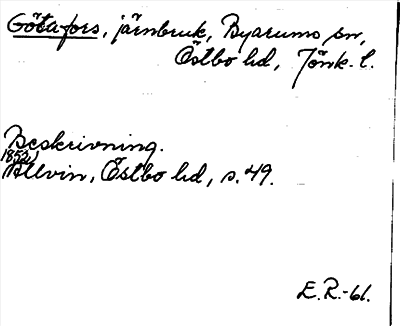 Götafors, järnbruk, Byarums sn,
Östbo hd, Jönk. l.
Beskrivning.
1852)
Allvin, Östbo hd, s. 49.
E.R.-61.